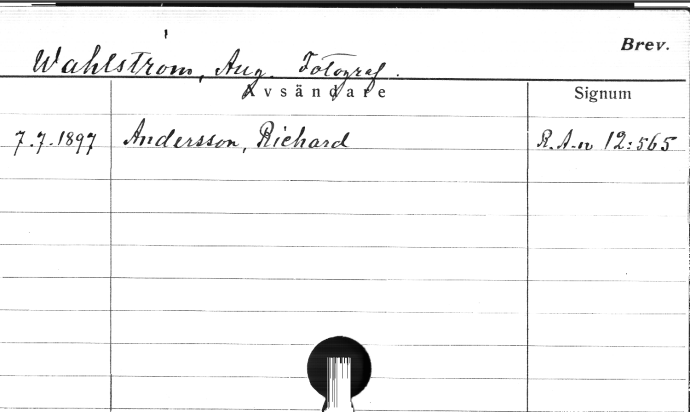 Brev.
Wahlström, Aug. Fotograf.
Avsändare Signum
7.7.1897 Andersson, Richard R.A.n 12:565